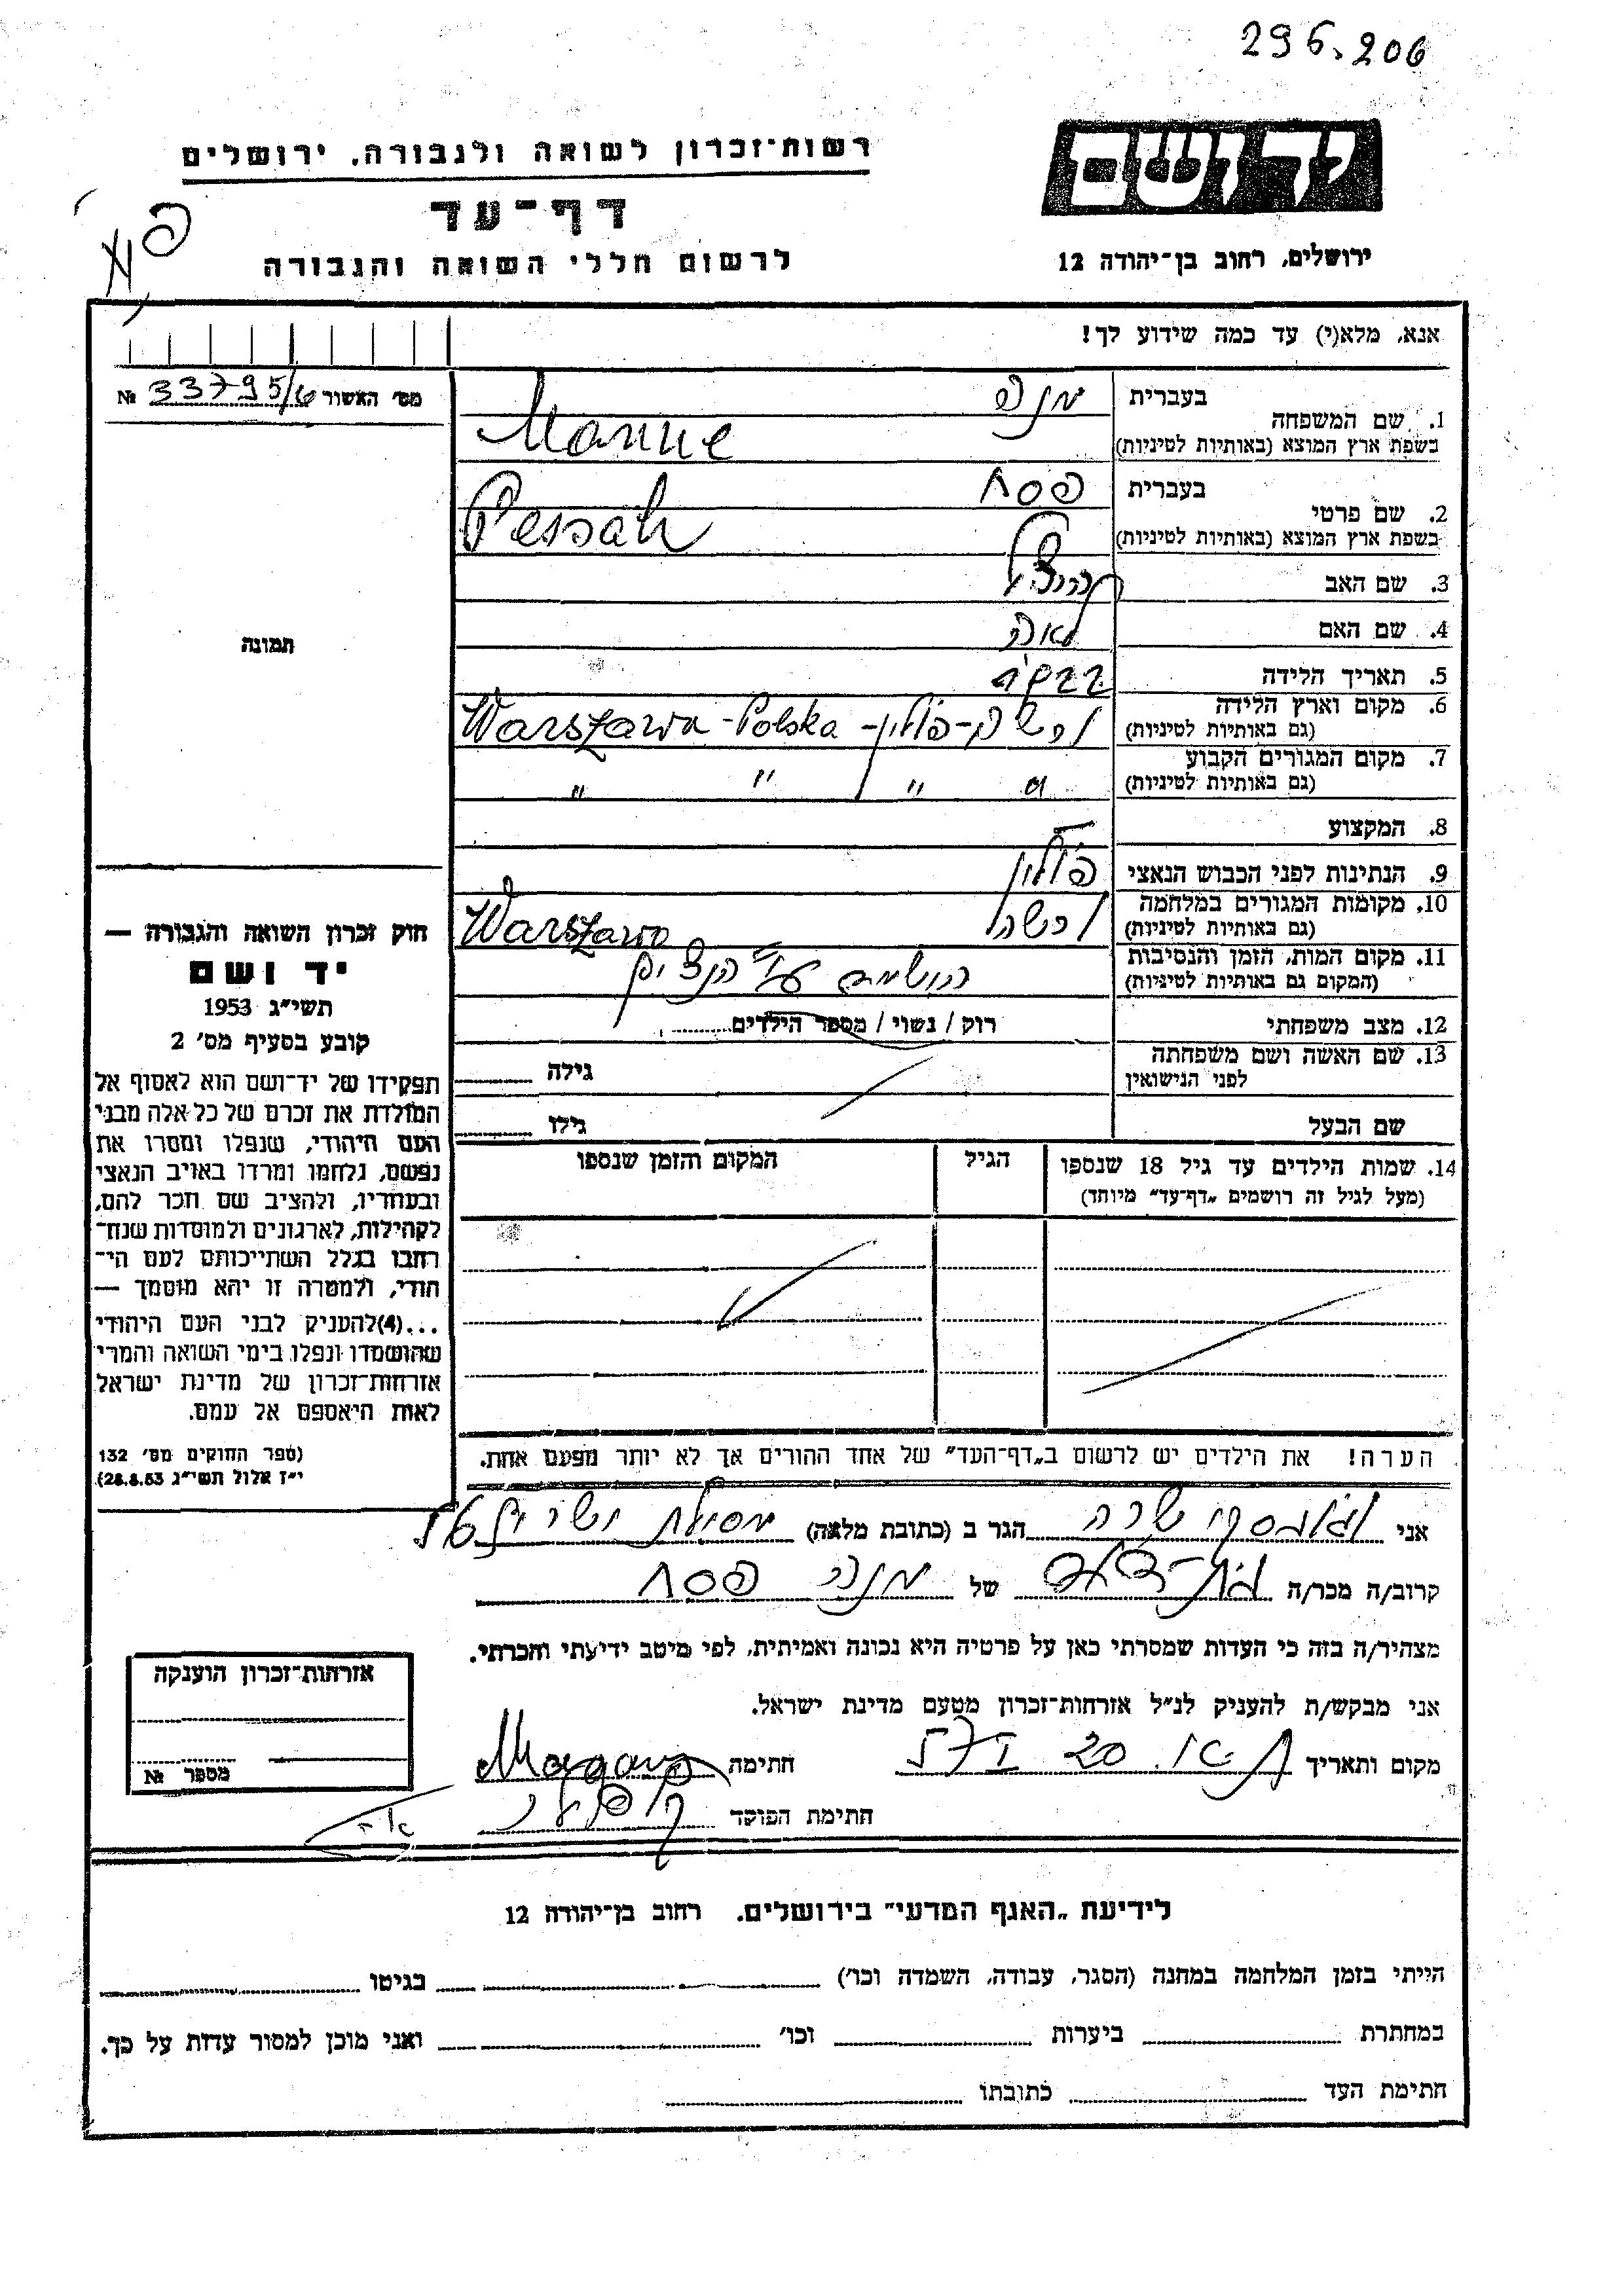 296.206
יד ושם
רשות־זכרון לשואה ולגבורה, ירושלים
דף־עד
לרשום חללי השואה והגבורה
ירושלים, רחוב בן־יהודה 12
אנא, מלא(י) עד כמה שידוע לך!
מס׳ האשור 33795/6 №
1. שם המשפחה
בעברית מנה
בשפת ארץ המוצא (באותיות לטיניות) Manne
2. שם פרטי
בעברית פסח
בשפת ארץ המוצא (באותיות לטיניות) Pessah
3. שם האב
4. שם האם לאה
5. תאריך הלידה
6. מקום וארץ הלידה
(גם באותיות לטיניות) ורשה-פולין- Warszawa-Polska
7. מקום המגורים הקבוע
(גם באותיות לטיניות) " " " "
8. המקצוע —
9. הנתינות לפני הכבוש הנאצי פולין
10. מקומות המגורים במלחמה
(גם באותיות לטיניות) ורשה Warszawa
11. מקום המות, הזמן והנסיבות
(המקום גם באותיות לטיניות) הושמד ע"י הנצים
12. מצב משפחתי רוק / נשוי / מספר הילדים
13. שם האשה ושם משפחתה
לפני הנישואין גילה
שם הבעל גילו
14. שמות הילדים עד גיל 18 שנספו הגיל המקום והזמן שנספו
(מעל לגיל זה רושמים „דף־עד" מיוחד)
הערה! את הילדים יש לרשום ב„דף־העד" של אחד ההורים אך לא יותר מפעם אחת.
תמונה
חוק זכרון השואה והגבורה —
יד ושם
תשי״ג 1953
קובע בסעיף מס׳ 2
תפקידו של יד־ושם הוא לאסוף אל
המולדת את זכרם של כל אלה מבני
העם היהודי, שנפלו ומסרו את
נפשם, נלחמו ומרדו באויב הנאצי
ובעוזריו, ולהציב שם וזכר להם,
לקהילות, לארגונים ולמוסדות שנח־
רבו בגלל השתייכותם לעם הי־
הודי, ולמטרה זו יהא מוסמך —
...(4)להעניק לבני העם היהודי
שהושמדו ונפלו בימי השואה והמרי
אזרחות־זכרון של מדינת ישראל
לאות היאספם אל עמם.
(ספר החוקים מס׳ 132
י״ז אלול תשי״ג 28.8.53)
אני שרה הגר ב (כתובת מלאה) מסילת ישרים
קרוב/ה מכר/ה בת-דוד של מנה פסח
מצהיר/ה בזה כי העדות שמסרתי כאן על פרטיה היא נכונה ואמיתית, לפי מיטב ידיעתי והכרתי.
אני מבקש/ת להעניק לנ״ל אזרחות־זכרון מטעם מדינת ישראל.
מקום ותאריך ת"א. 20 חתימה
חתימת הפוקד
אזרחות־זכרון הוענקה
מספר №
לידיעת „האגף המדעי" בירושלים. רחוב בן־יהודה 12
הייתי בזמן המלחמה במחנה (הסגר, עבודה, השמדה וכו׳) בגיטו
במחתרת ביערות וכו׳ ואני מוכן למסור עדות על כך.
חתימת העד כתובתו